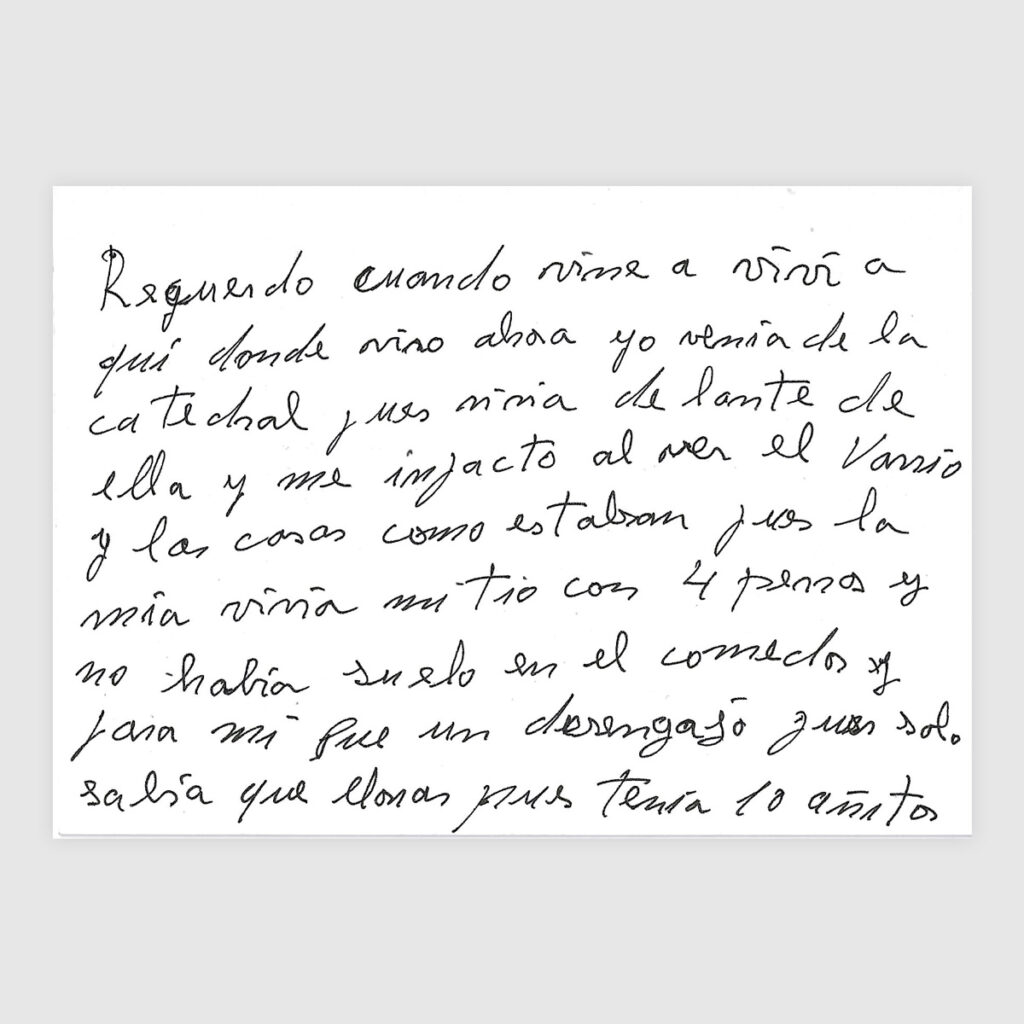 Requerdo cuando vine a viví a
quí donde vivo ahora yo venía de la
catedral pues vivia de lante de
ella y me injacto al ver el Varrio
y las casas como estaban pues la
mía vivía mi tio con 4 perros y
no había suelo en el comedor y
para mí fue un desengajo pues solo
sabía que lloras pues tenía 10 añitos